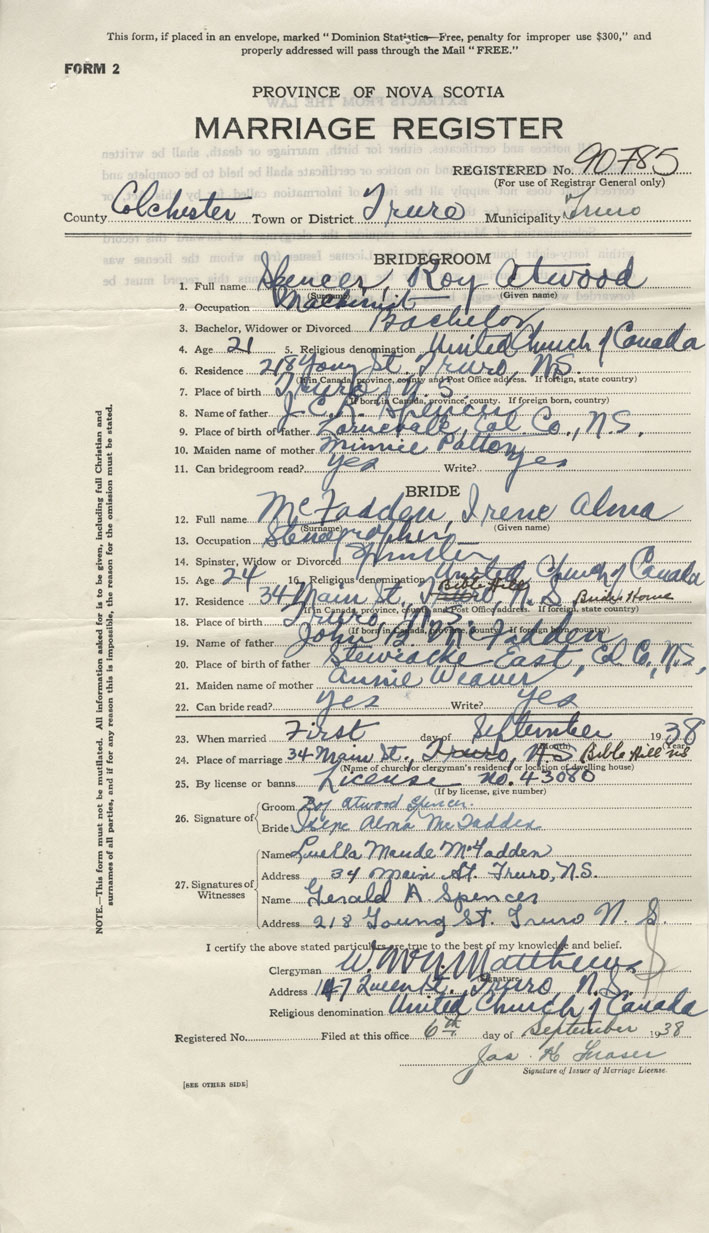 This form, if placed in an envelope, marked "Dominion Statistics—Free, penalty for improper use $300," and
properly addressed will pass through the Mail "FREE."
FORM 2
PROVINCE OF NOVA SCOTIA
MARRIAGE REGISTER
REGISTERED No. 90785
(For use of Registrar General only)
County Colchester Town or District Truro Municipality Truro
BRIDEGROOM
1. Full name Spencer, Roy Atwood
(Surname) (Given name)
2. Occupation Machinist
3. Bachelor, Widower or Divorced Bachelor
4. Age 21 5. Religious denomination United Church of Canada
6. Residence 218 Young St. Truro, N.S.
(If in Canada, province, county and Post Office address. If foreign, state country)
7. Place of birth Truro, N.S.
(If born in Canada, province, county. If foreign born, country)
8. Name of father J. C. R. Spencer
9. Place of birth of father Col. Co., N.S.,
10. Maiden name of mother Minnie Patton
11. Can bridegroom read? yes Write? yes
BRIDE
12. Full name McFadden, Irene Alma
(Surname) (Given name)
13. Occupation Stenographer
14. Spinster, Widow or Divorced Spinster
15. Age 24 16. Religious denomination United Church of Canada
Bible Hill
17. Residence 34 Main St., Truro, N.S. Bride's Home
(If in Canada, province, county and Post Office address. If foreign, state country)
18. Place of birth Truro, N.S.
(If born in Canada, province, county. If foreign born, country)
19. Name of father John McFadden
20. Place of birth of father Stewiacke East, Col. Co., N.S.,
21. Maiden name of mother Annie Weaver
22. Can bride read? yes Write? yes
23. When married First day of September 1938
(Month) (Year)
24. Place of marriage 34 Main St., Truro, N.S. Bible Hill NS
(Name of church or clergyman's residence or location of dwelling house)
25. By license or banns License no. 43080
(If by license, give number)
26. Signature of
Groom Roy Atwood Spencer.
Bride Irene Alma McFadden
27. Signatures of Witnesses
Name Luella Maude McFadden
Address 34 Main St. Truro, N.S.
Name Gerald A. Spencer
Address 218 Young St. Truro N. S.
I certify the above stated particulars are true to the best of my knowledge and belief.
Clergyman Matthews
(Signature)
Address 147 Queen St. Truro, N.S.
Religious denomination United Church of Canada
Registered No. Filed at this office 6th day of September 1938
Jas. H. Fraser
Signature of Issuer of Marriage License.
[SEE OTHER SIDE]
NOTE.—This form must not be mutilated. All information asked for is to be given, including full Christian and
surnames of all parties, and if for any reason this is impossible, the reason for the omission must be stated.